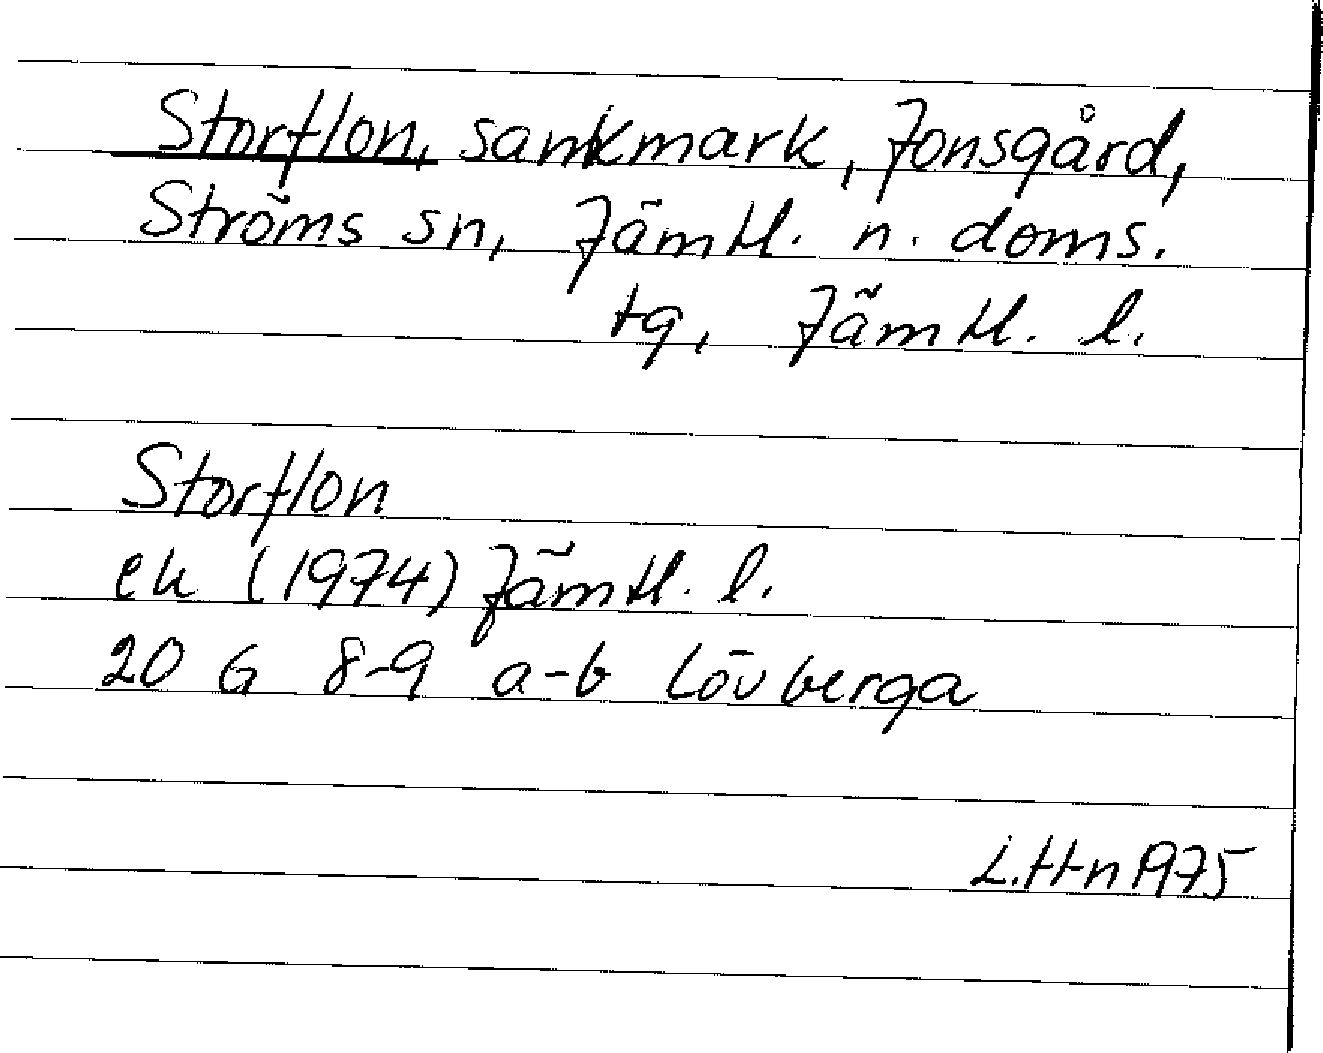 Storflon, sankmark, Jonsgård,
Ströms sn, Jämtl. n. doms.
tg, Jämtl. l.
Storflon
ek (1974) Jämtl. l.
20 G 8-9 a-b Lövberga
L.Hn 1975